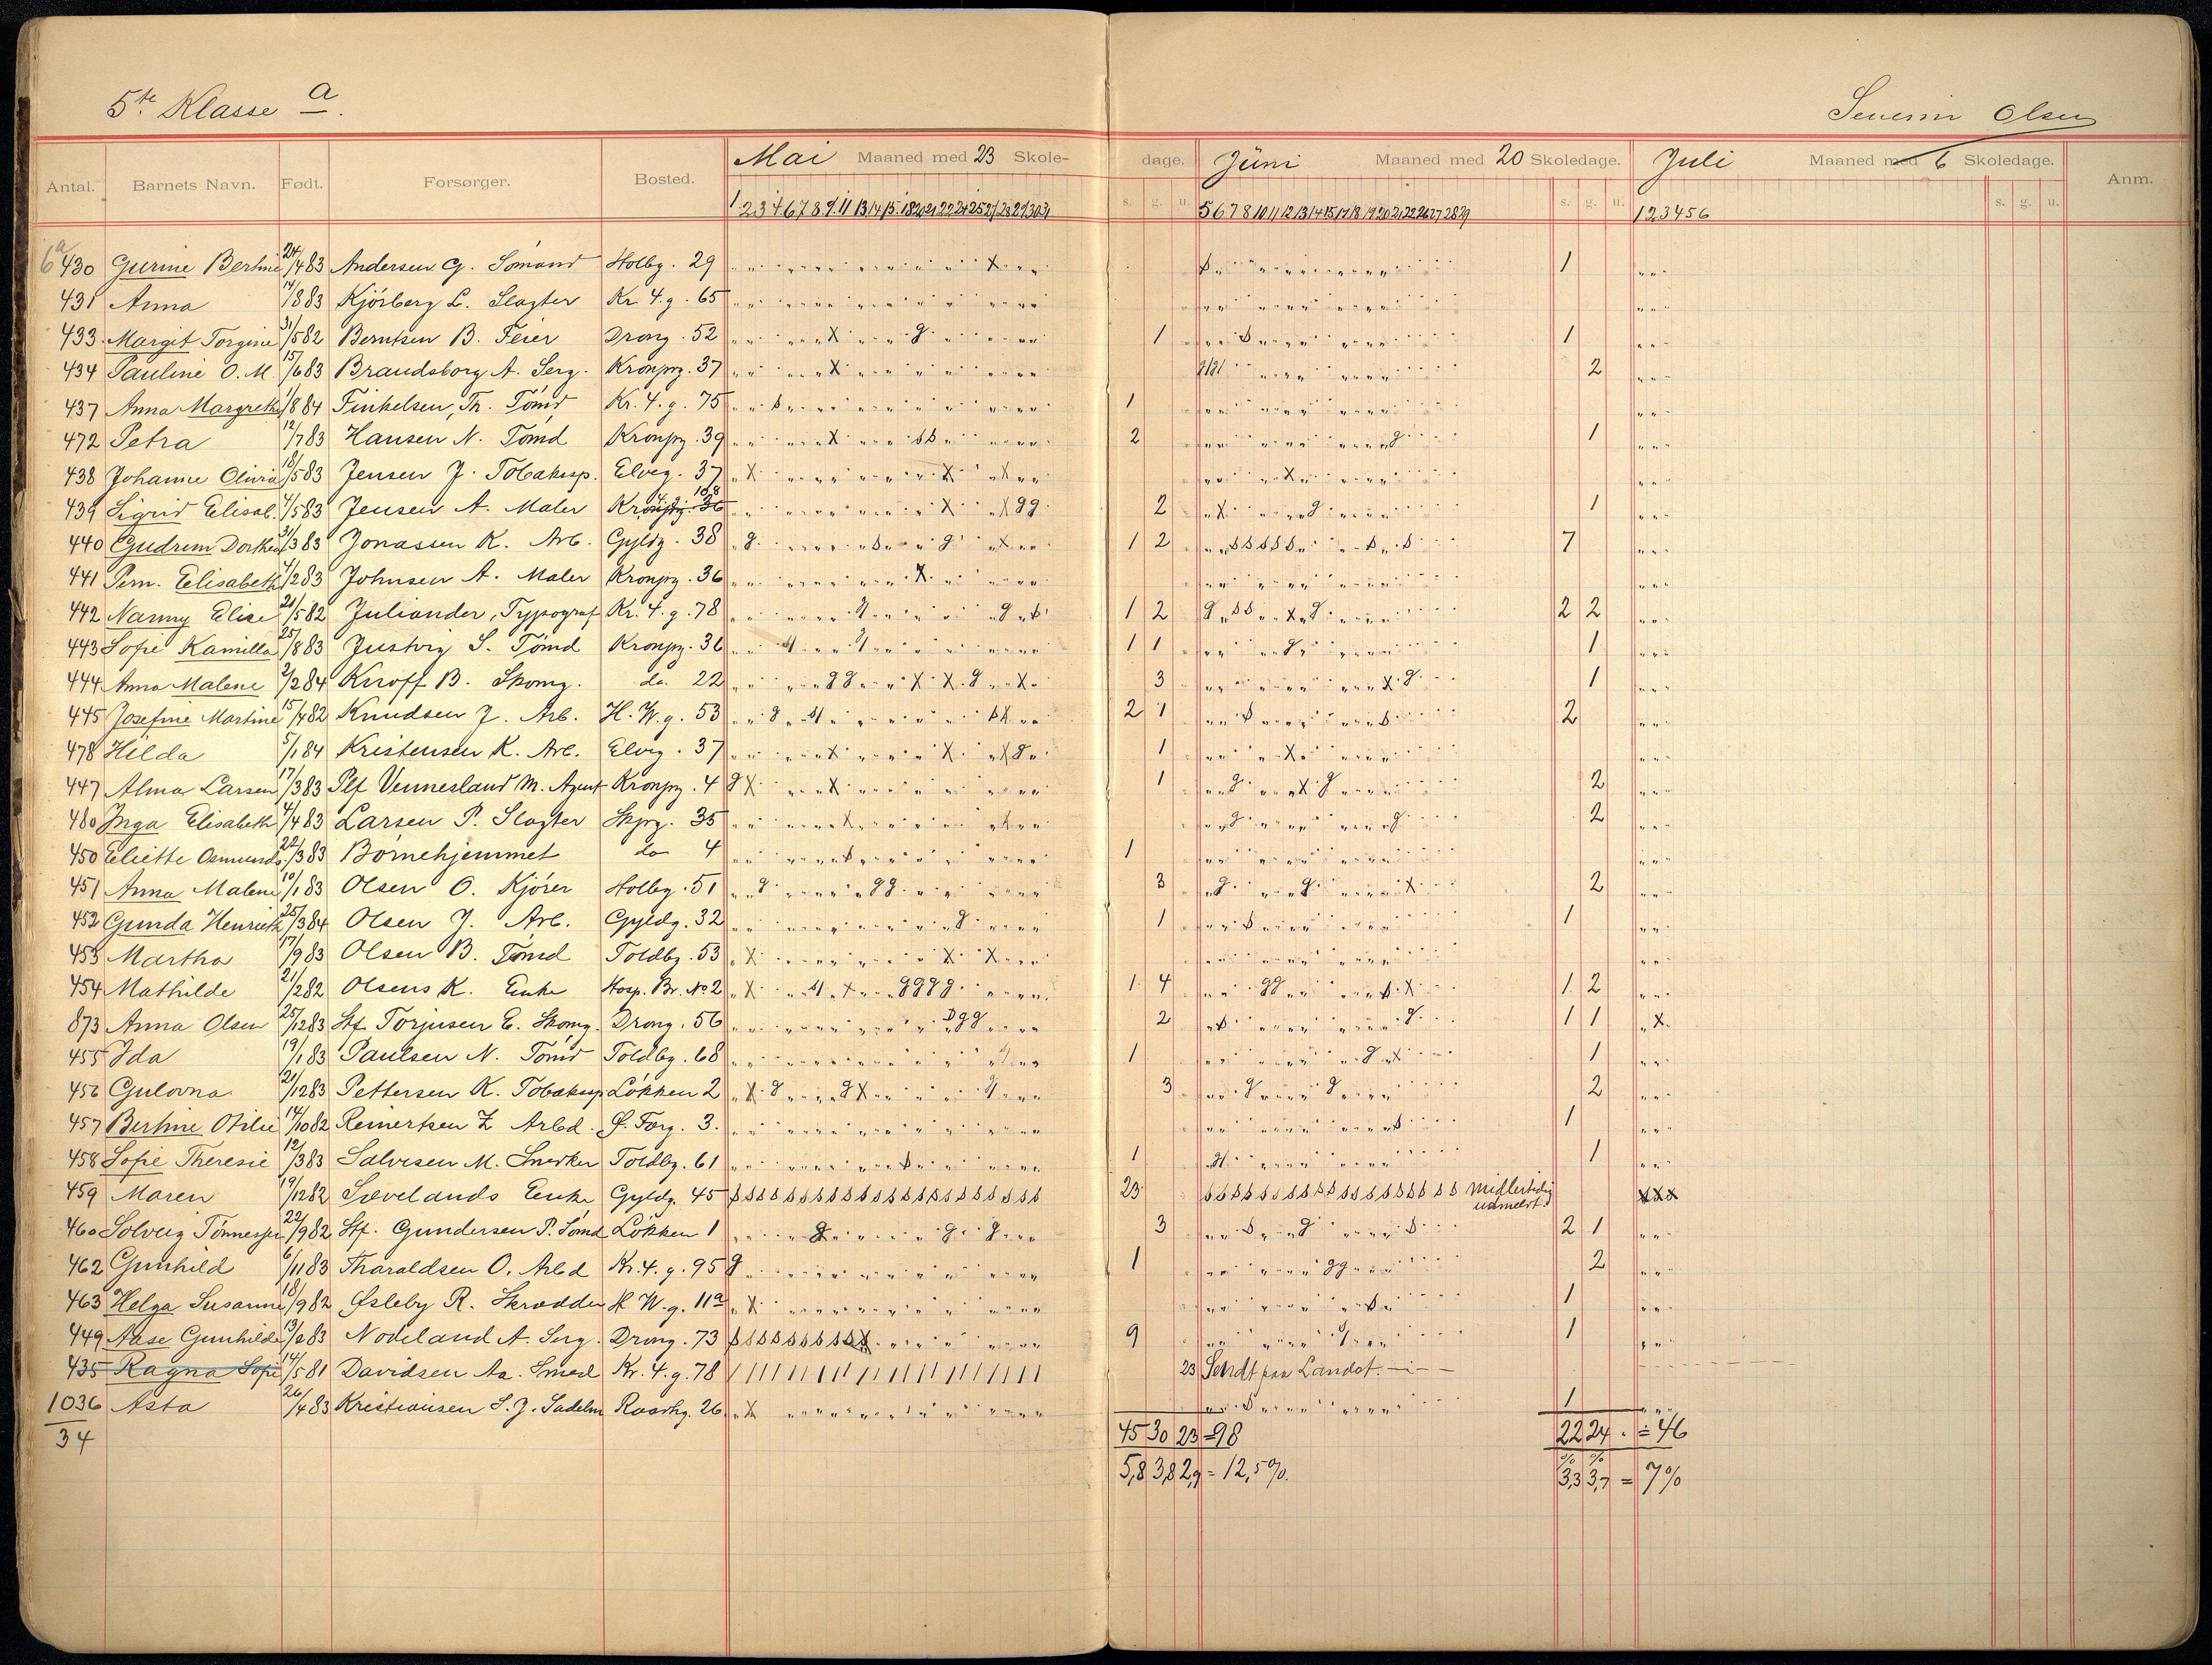 5te Klasse a.
Severin Olsen
Antal. Barnets Navn. Født. Forsørger. Bosted. Mai Maaned med 23 Skole- dage. Juni Maaned med 20 Skoledage. Juli Maaned med 6 Skoledage. Anm.
s. g. u. s. g. u. 1 2 3 4 5 6 s. g. u.
6a
430 Gurine Bertine 24/4 83 Andersen G. Sömand Holbg. 29 1
431 Anna 14/8 83 Kjörberg L. Slagter Kr. 4. g. 65
433. Margit Torgine 31/5 82 Berntsen B. Feier Drong. 52 1 1
434 Pauline O. M. 15/6 83 Brandsborg A. Serg. Kronprg. 37 2
437 Anna Margrethe 1/8 84 Finkelsen, Th. Tömd Kr. 4. g. 75 1
472 Petra 12/7 83 Hansen N. Tömd Kronprg. 39 2 1
438 Johanne Olivia 18/5 83 Jensen J. Tobaksp. Elveg. 37
439 Sigrid Elisab. 4/5 83 Jensen A. Maler Kr. 4. g. 108 2 1
440 Gudrun Dorthea 31/3 83 Jonassen K. Arb. Gyldg. 38 1 2 7
441 Pern. Elisabeth 4/2 83 Johnsen A. Maler Kronprg. 36
442 Nanny Elise 21/5 82 Juliander, Typograf Kr. 4. g. 78 1 2 2 2
443 Sofie Kamilla 25/8 83 Justvig S. Tömd Kronprg. 36 1 1 1
444 Anna Malene 2/2 84 Knoff B. Skomg. do. 22 3 1
445 Josefine Martine 15/4 82 Knudsen J. Arb. H. W. g. 53 2 1 2
478 Hilda 5/1 84 Kristensen K. Arb. Elveg. 37 1
447 Alma Larsen 17/3 83 Plf Vennesland M. Agent Kronprg. 4 1 2
480 Inga Elisabeth 4/4 83 Larsen P. Slagter Skprg. 35 2
450 Eliette Osmunds. 22/3 83 Börnehjemmet do 4 1
451 Anna Malene 10/1 83 Olsen O. Kjörer Holbg. 51 3 2
452 Gunda Henriette 25/3 84 Olsen J. Arb. Gyldg. 32 1 1
453 Martha 17/9 83 Olsen B. Tömd Toldbg. 53
454 Mathilde 21/2 82 Olsens K. Enke Hosp. Br. No 2 1 4 1 2
873 Anna Olsen 25/12 83 Stf. Torjusen E. Skomg. Drong. 56 2 1 1
455 Ida 19/1 83 Paulsen N. Tömd Toldbg. 68 1 1
456 Gulovna 21/12 83 Pettersen K. Tobaksp Lökken 2 3 2
457 Bertine Otilie 14/10 82 Reinertsen Z Arbd. Ø. Færg. 3. 1
458 Sofie Theresie 12/3 83 Salvesen M. Snedker Toldbg. 61 1 1
459 Maren 19/12 82 Sævelands Enke Gyldg. 45 23 midlertidig udmeldt
460 Solveig Tönnessen 22/9 82 Stf. Gundersen P. Sömd Lökken 1 3 2 1
462 Gunhild 6/11 83 Tharaldsen O. Arbd Kr. 4. g. 95 1 2
463 Helga Susanne 18/9 82 Øsleby R. Skrædder H. W. g. 11a 1
449 Aase Gunhilde 13/2 83 Nodeland A. Serg. Drong. 73 9 1
435 Ragna Sofie 14/5 81 Davidsen Aa. Smed Kr. 4. g. 78 23 Sendt paa Landet.
1036 Asta 26/4 83 Kristiansen S. J. Sadelm Raadhg. 26 1
34
45 30 23 = 98 22 24 . = 46
5,8 3,8 2,9 = 12,5 %. % % 3,3 3,7 = 7 %